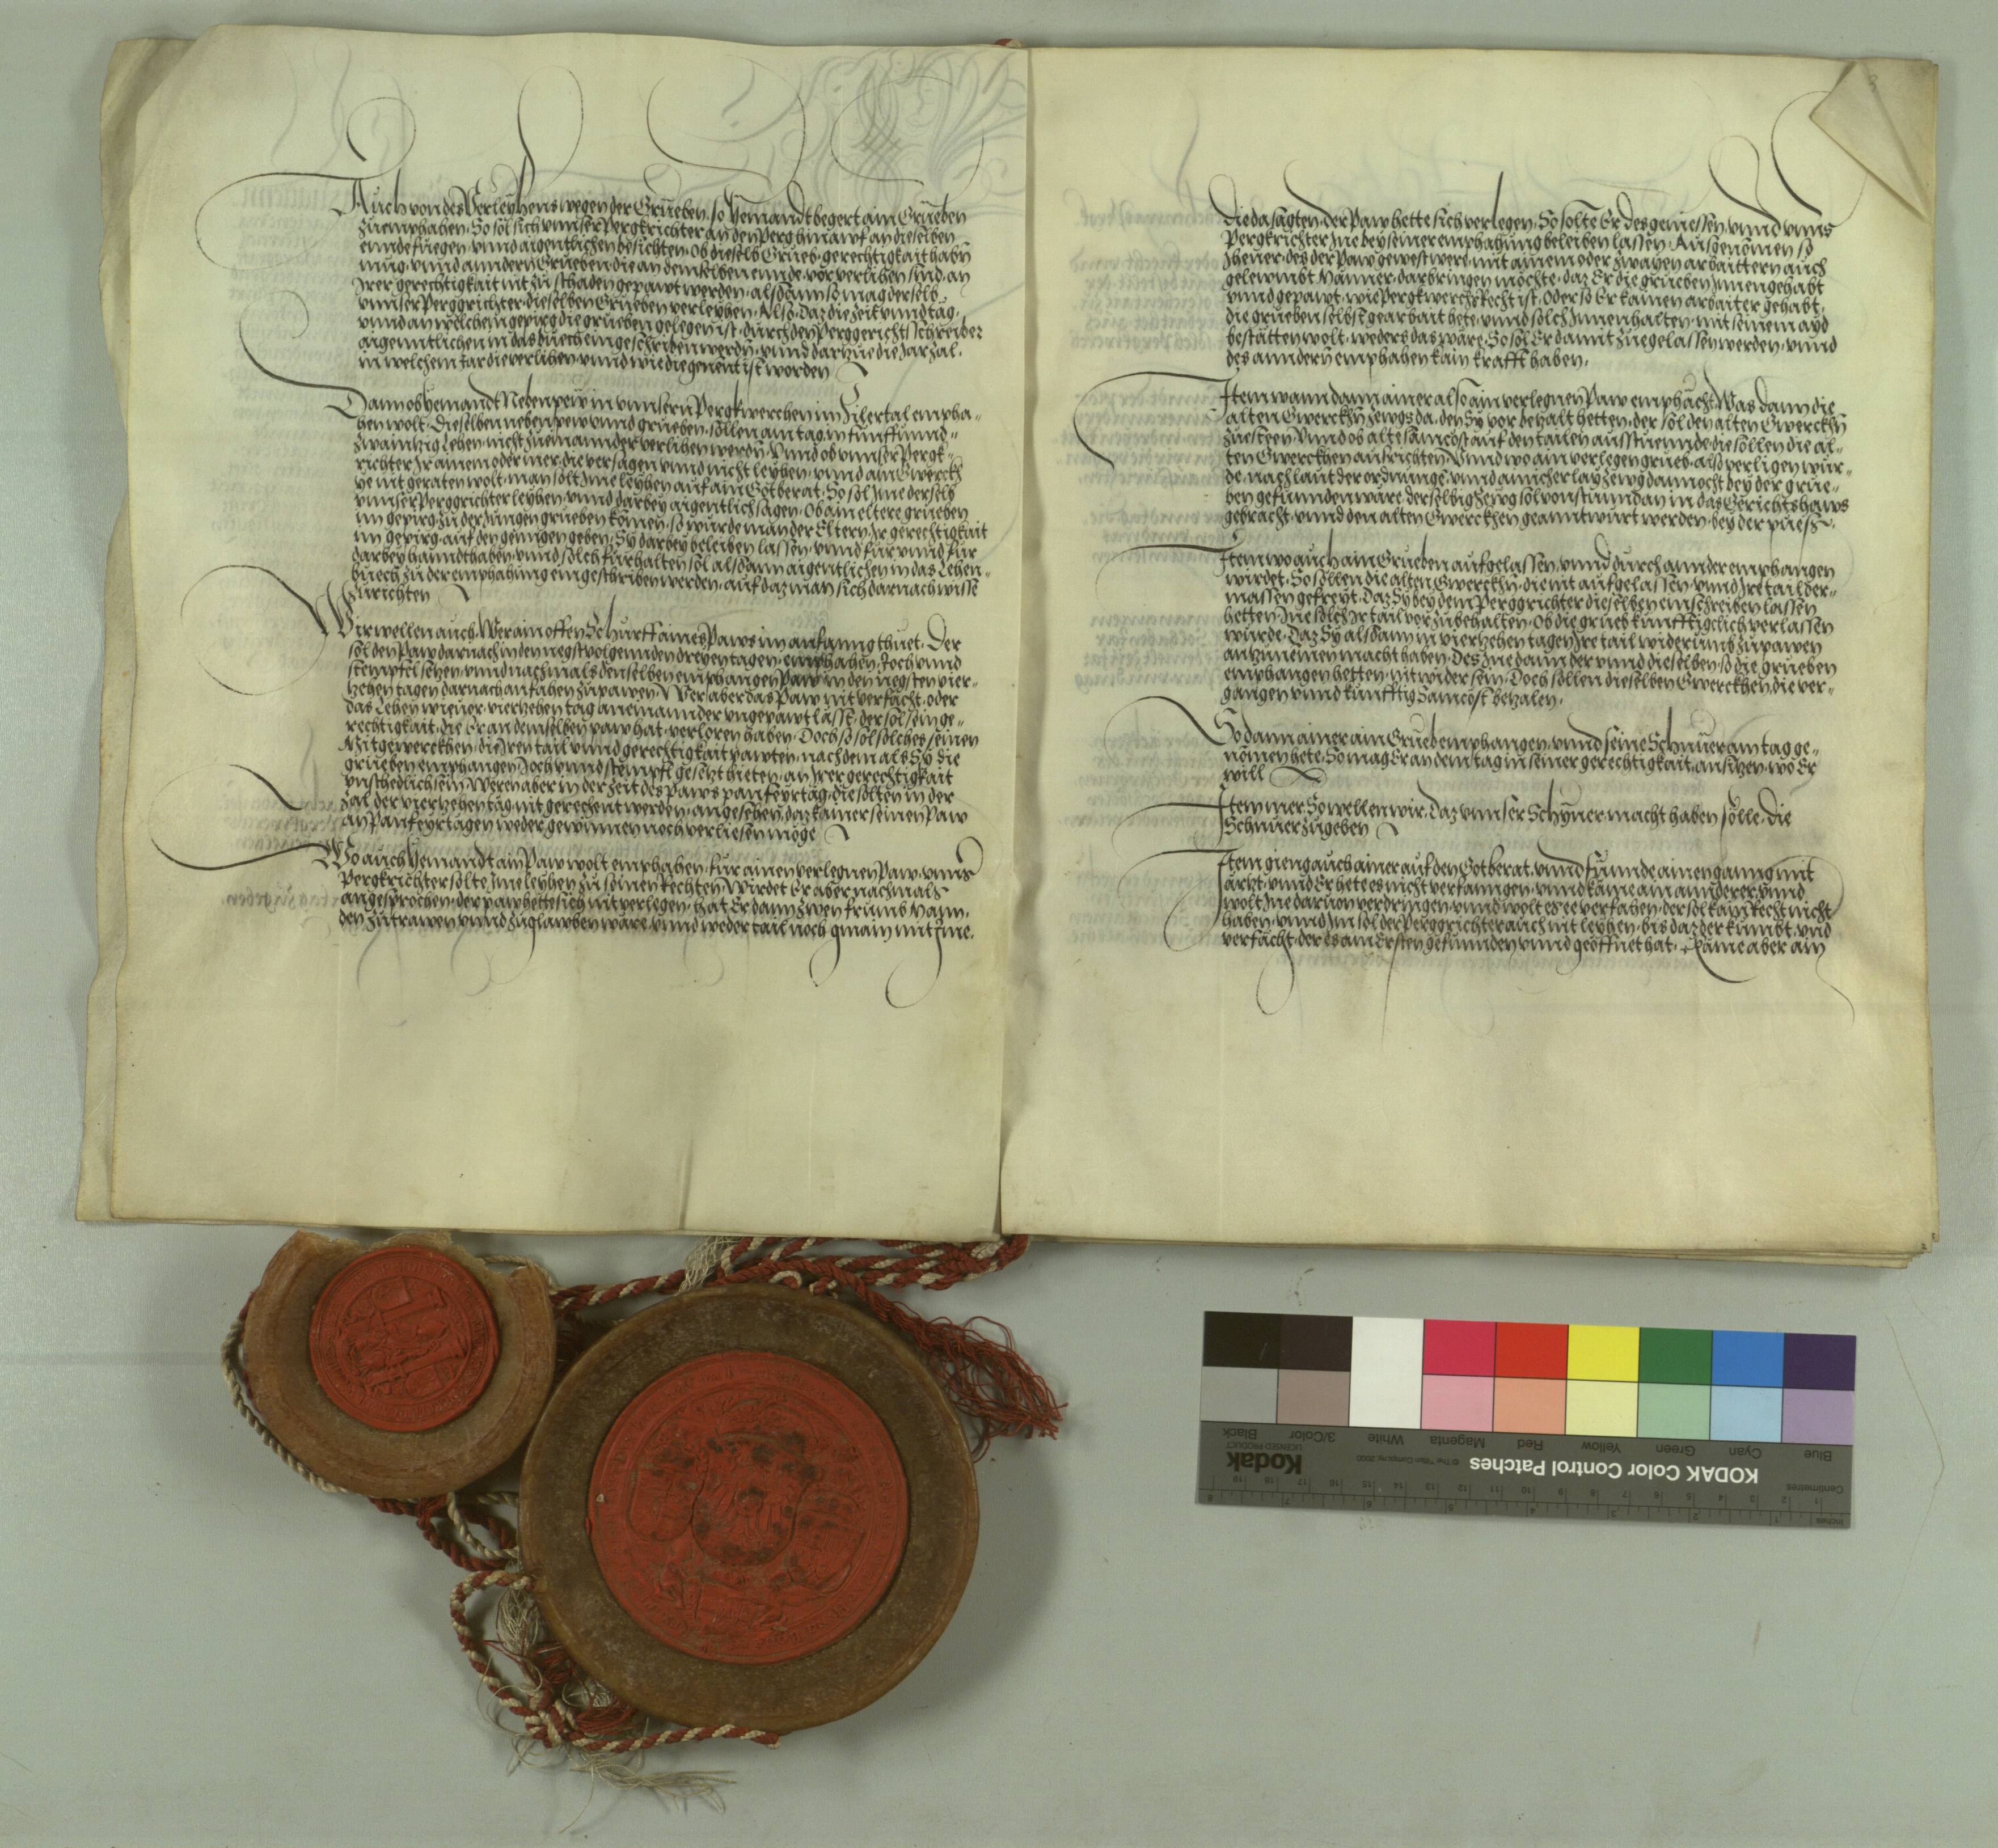 Auch von des Verleyhens wegen der Grueben, so Yemandt begert ain Grueben
zuemphahen, So sol sich vnnser Pergkrichter an den Perg hinauf an dieselben
ennde fuegen, vnnd aigentlichen besichten, Ob dieselb Grueb, gerechtigkait habn
mug, vnnd anndern Grueben, die an demselben ennde, vor verlihen sind, an
Irer gerechtigkait nit zu schaden gepawt werden, alsdann so mag derselb
vnnser Perggrichter, dieselben Grueben verleyhen, Also, Daz die zeit vnnd tag,
vnnd an welchem gepirg die grueben gelegen ist, durch den Perggerichtschreiber
aigenntlichen in das buech eingeschriben werdn, vnnd darzue die Jarzal,
in welchem Jar die verlihen, vnnd wie die genent ist worden
Dann ob yemandt Nebenpew in vnnsern Pergkwerchen im Zilertal empha-
hen wolt, Dieselben nebenpew vnnd grueben, sollen am tag in funffunnd-
zwaintzig Lehen, nicht zueinannder verlihen werdn, Vnnd ob vnnser Pergk-
richter Ir ainem oder mer, die versagen vnnd nicht leyhen, vnnd ain Gwerckh
ye nit geraten wolt, man solt Ime leyhen auf ain Gotberat, So sol Ime derselb
vnnser Perggrichter leyhen, vnnd darbey aigentlich sagen, Ob ain eltere grueben
im gepirg zu der Jungen grueben komen, so wurde man der Eltern, Ir gerechtigkait
im gepirg, auf den genngen geben, Sy darbey beleiben lassen, vnnd fur vnnd fur
darbey hanndthaben, vnnd solch furhalten sol alsdann aigentlichen in das Lehen-
buech zu der emphahung eingeschriben werden, auf daz man sich darnach wisse
zurichten
Wir wellen auch, Wer ain offen Schurff aines Paws im anfanng thuet, Der
sol den Paw darnach in den negstvolgennden dreyen tagen, emphahen, Joch vnnd
stempfel setzen, vnnd nachmals denselben emphangen Paw in den negsten vier-
zehen tagen darnach anfahen zupawen, Wer aber das Paw nit verfacht, oder
das Lehen wie uer, vierzehen tag aneinannder vngepawt lasst, der sol sein ge-
rechtigkait, die Er an demselben paw hat, verloren haben, Doch so sol solches seinen
Mitgewerckhen, die Iren tail vnnd gerechtigkait pawten, nachdem als Sy die
grueben emphangen, Joch vnnd stempfl gesetzt hieten, an Irer gerechtigkait
vnschedlich sein, Weren aber in der zeit des Paws panfeyrtag, die solten in der
zal, der vierzehen tag nit gerechent werden, angesehen, daz kainer seinen Paw
an Panfeyrtagen weder gewinnen noch verliesen möge
Wo auch Yemandt ain Paw wolt emphahen, fur ainen verlegnen Paw, vnns
Pergkrichter solte Ime leyhen zu seinen Rechten, Wirdet Er aber nachmals
angesprochen, der paw hette sich nit verlegen, Hat Er dann zwen frumb Mann,
den zutrawen vnnd zuglawben ware, vnnd weder tail noch gmain mit Ime,
Die da sagten, der Paw hette sich verlegen, So solte Er des geniessen, vnnd vnns
Pergkrichter Ine bey seiner emphahung beleiben lassen, Ausgenomen so
Jhener, des der Paw gewest were, mit ainem oder zwayen arbaittern auch
gelewmbt Männer, darbringen möchte, daz Er die grueben Innengehabt
vnnd gepawt, wie Pergkwerchs Recht ist, Oder so Er kainen arbaiter gehabt,
die grueben selbst gearbait hete, vnnd solch Innenhalten, mit seinem ayd
bestätten wolt, weders das ware, So sol Er damit zuegelassen werden, vnnd
des anndern emphahen kain krafft haben,
Item wann dann ainer also ain verlegnen Paw emphacht, Was dann die
alten Gwerckhn zewgs da, den Sy vor dehalt hetten, der sol den alten Gwerckhn
zuesteen, Vnnd ob alte samcost auf den tailen ausstuennde, die sollen die al-
ten Gwerckhen ausrichten, Vnnd wo ain verlegen grueb, also verligen wur-
de, nach laut der ordnunge, vnnd ainicherlay zewg dannocht bey der grue-
ben gefunnden ware, derselbig zewg sol von stunndan in das Gerichtshaws
gebracht, vnnd den alten Gwerckhen geanntwurt werden, bey der puess,
Item wo auch ain Grueben aufgelassen, vnnd durch annder emphangen
wirdet, So sollen die alten Gwerckhn, die nit aufgelassen, vnnd Ire tail der-
massen gefreyt, Daz Sy bey dem Perggrichter dieselben einschreiben lassen
hetten, Ine solch Ir tail vorzubehalten, Ob die grueb kunfftigclich verlassen
wurde, Daz Sy alsdann in vierzehen tagen, Ire tail widerumb zupawen
anzunemen macht haben, Des Ine dann der vnnd dieselben, so die grueben
emphangen hetten, nit wider sein, Doch sollen dieselben Gwerckhen, die ver-
gangen vnnd kunfftig Samcost betzalen,
So dann ainer ain Grueb emphangen, vnnd seine Schnuer am tag ge-
nomen hete, So mag Er an dem tag in seiner gerechtigkait, ansitzen, wo Er
will
Item mer, So wellen wir, Daz vnnser Schyner macht haben solle, die
Schnuer zugeben
Item gieng auch ainer auf den Gotberat, vnnd funnde ainen ganng mit
ärtzt, vnnd Er hete es nicht verfanngen, vnnd käme ain annderer, vnnd
wolt Ine daruon verdringen, vnnd wolt es ee verfahen, der sol kain Recht nicht
haben, vnnd Im sol der Perggrichter auch nit leyhen, bis daz der kumbt, vnd
verfächt, der es am Ersten gefunnden vnnd geöffnet hat, Käme aber ain
KODAK Color Control Patches
Kodak
LICENSED PRODUCT
© The Tiffen Company, 2000
Blue Cyan Green Yellow Red Magenta White 3/Color Black
Centimetres
Inches